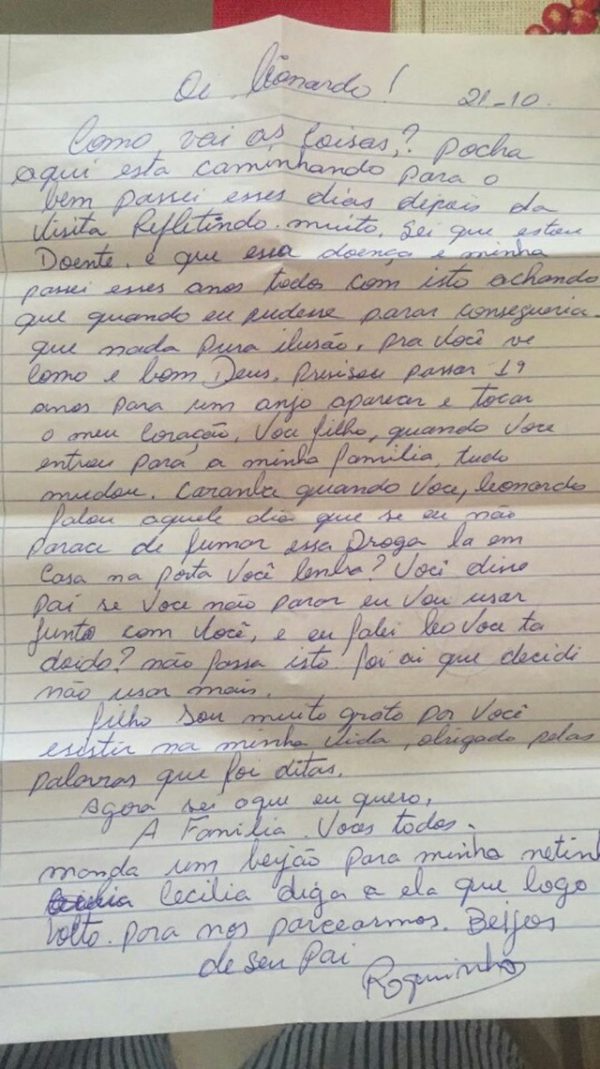 Oi Leonardo! 21-10.
Como vai as Coisas,? Pocha
aqui esta caminhando para o
bem passei esses dias depois da
visita Refletindo. muito. Sei que estou
Doente. e que essa doença e minha
passei esses anos todos com isto achando
que quando eu pudesse parar conseguiria.
que nada pura ilusão. pra você ve
como e bom Deus. Precisou passar 19
anos para um anjo aparecer e tocar
o meu coração, Voce filho, quando Voce
entrou para a minha família, tudo
mudou. Caramba quando Voce, leonardo
falou aquele dia que se eu não
parace de fumar essa Droga la em
Casa na porta Você lenbra? Você dice
pai se Voce não parar eu vou usar
junto com Você, e eu falei leo Voce ta
doido? não fassa isto. foi ai que decidi
não usar mais.
filho sou muito grato por Você
existir na minha Vida, obrigado pelas
palavras que foi ditas.
Agora sei oque eu quero,
A Familia. Voces todos.
manda um beijão para minha netinh
Cecilia diga a ela que logo
volto. para nos parcearmos. Beijos
de seu Pai
Roquinho